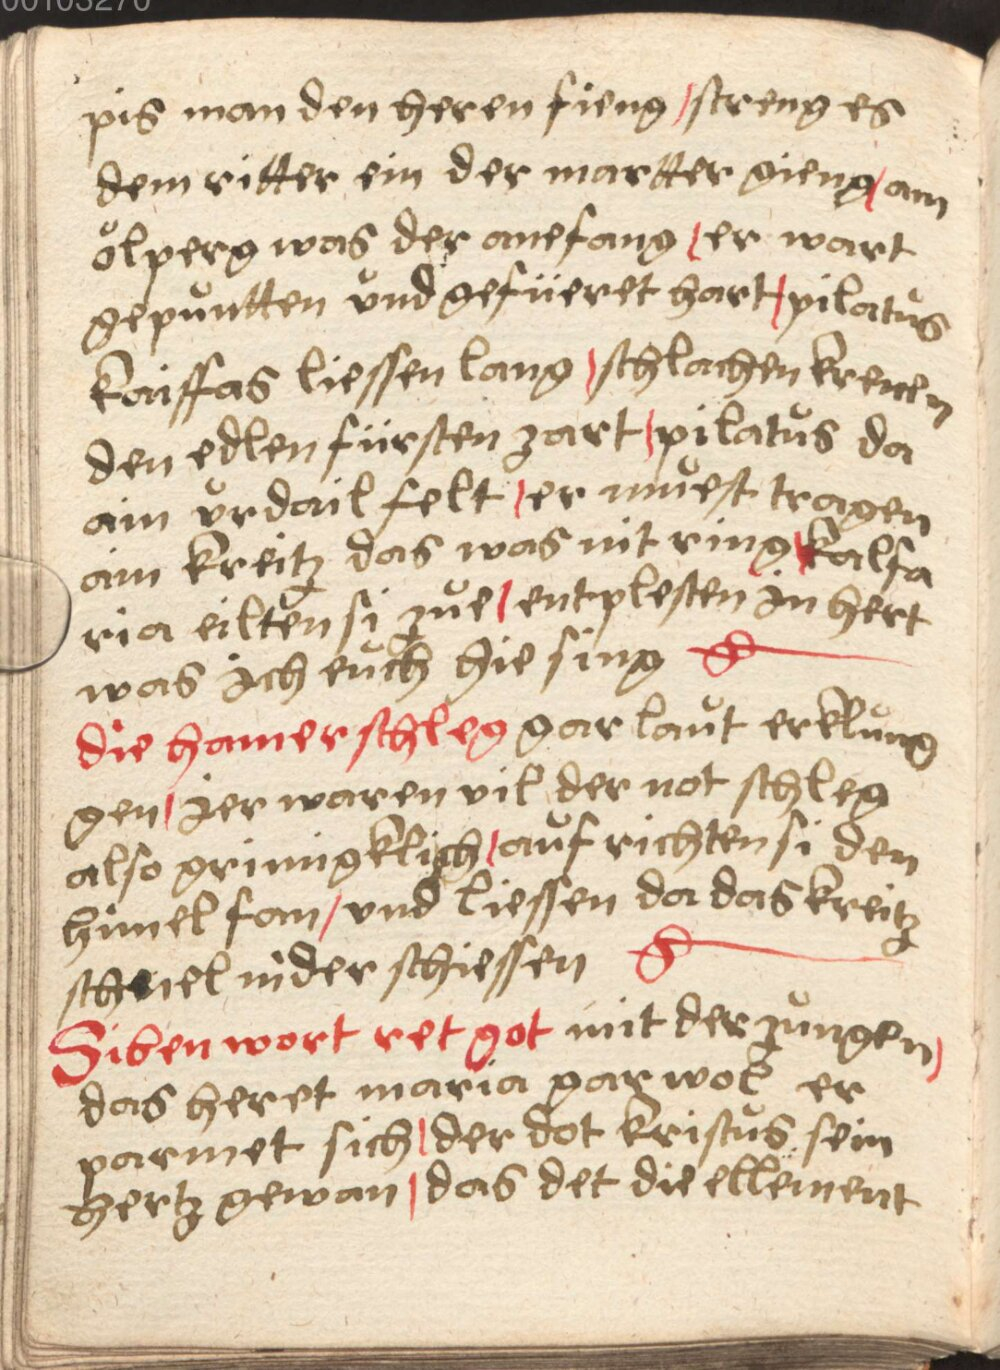 00103270
pis man den heren fieng / streng es
dem ritter ein der martter gieng / am
ölperg was der anefang / er wart
gepuntten vnd gefüeret hart / pilatus
kaiffas liessen lang / schlachen krenen
den edlen fürsten zart / pilatus da
ain vrdail felt / er muest tragen
ain kreitz das was nit ring / kalfa
ria eilten si zue / entplesten in hert
was ich euch hie sing
die hamer schleg gar laut erklung
gen / ier waren vil der not schleg
also grimigklich / auf richten si den
himel fan / vnd liessen da das kreitz
schnel nider schiessen
Siben wort ret got mit der zungen /
das heret maria gar wol er
parmet sich / der dot kristus sein
hertz gewan / das det die ellement